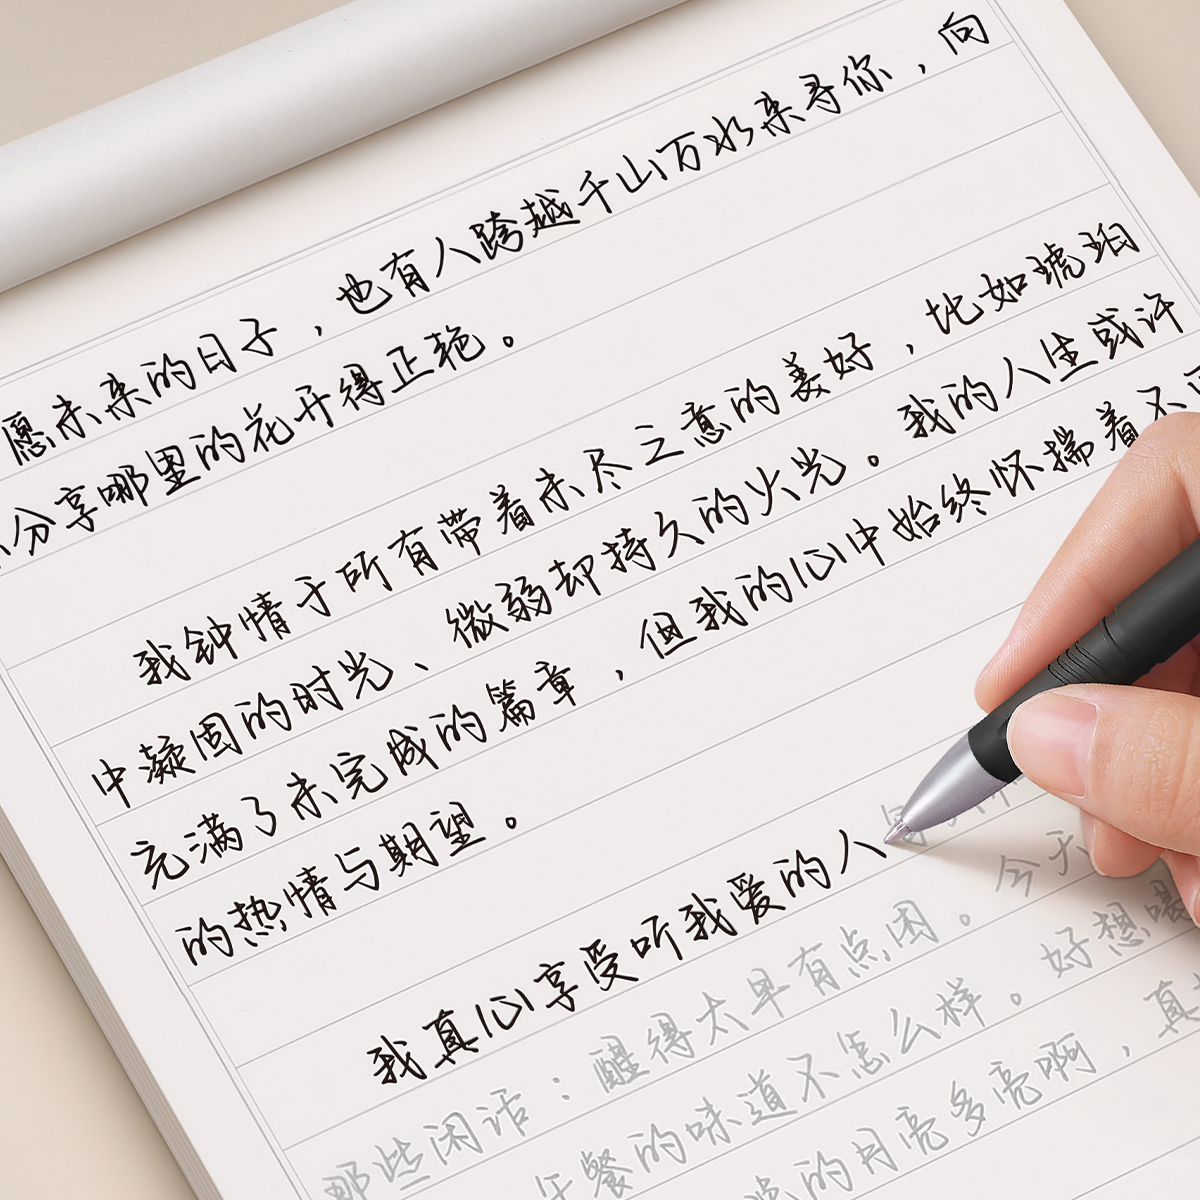 愿未来的日子，也有人跨越千山万水来寻你，向
分享哪里的花开得正艳。
我钟情于所有带着未尽之意的美好，比如琥珀
中凝固的时光、微弱却持久的火光。我的人生或许
充满了未完成的篇章，但我的心中始终怀揣着不
的热情与期望。
我真心享受听我爱的人
那些闲话：醒得太早有点困。今天
午餐的味道不怎么样。好想喂
的月亮多亮啊，真